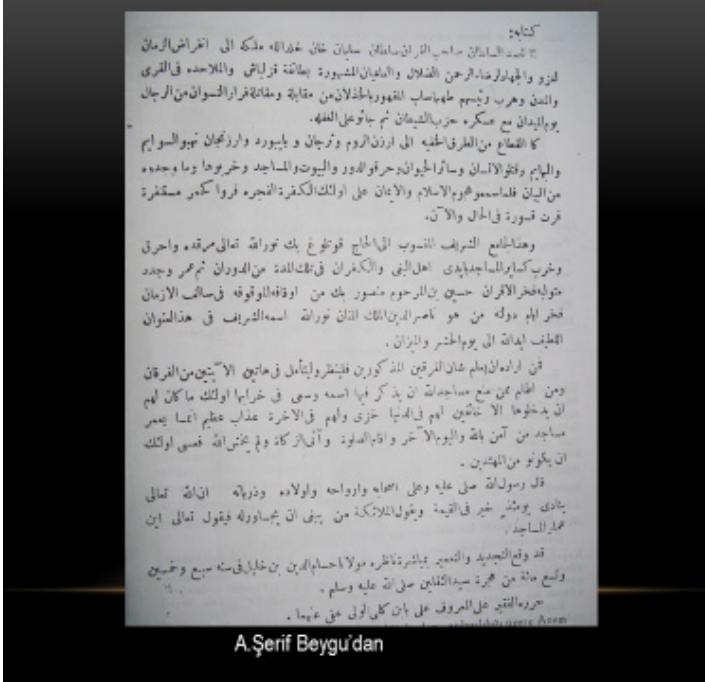 كتابه:
السلطان صاحب القران سلطان سليمان خان خلدالله ملكه الى انقراض الزمان
والجهاد لرضاء الرحمن الضلال والطغيان المشهورة بطائفة قزلباش والملاحده فى القرى
والمدن وهرب رئيسهم طهماساب المقهور بالخذلان من مقابلة ومقاتلة فرار النسوان من الرجال
يوم الميدان مع عسكره حزب الشيطان ثم جائو على الغفلة.
كا القطاع من الطرق الخفيه الى ارزن الروم وترجان و بايبورد وارزنجان نهبو السوايم
والبهايم وقتلو الانسان وسائر الحيوان وحرقو الدور والبيوت والمساجد وخربوها وما وجدوه
من البيان فلما سمعو هجوم الاسلام والايمان على اولئك الكفرة الفجره فروا كحمر مستنفرة
فرت قسورة فى الحال والآن.
وهذا الجامع الشريف المنسوب الى الحاج قوتلوغ بك نورالله تعالى مرقده واحرق
وخرب كساير المساجد بايدى اهل البغى والكفران فى تلك المدة من الدوران ثم عمر وجدد
متوليه فخر الاقران حسين بن المرحوم منصور بك من اوقافه الموقوفه فى سالف الازمان
فخر ايام دولة من هو ناصر الدين الملك المنان نورالله اسمه الشريف فى هذا العنوان
اللطيف ايدالله الى يوم الحشر والميزان .
فمن اراد ان يعلم شان الفرقتين المذكورين فلينظر وليتأمل فى هاتين الآيتين من الفرقان
ومن اظلم ممن منع مساجدالله ان يذكر فيها اسمه وسعى فى خرابها اولئك ماكان لهم
ان يدخلوها الا خائفين لهم فى الدنيا خزى ولهم فى الاخرة عذاب عظيم انما يعمر
مساجد من آمن بالله واليوم الآخر واقام الصلوة وآتى الزكاة ولم يخش الله فعسى اولئك
ان يكونو من المهتدين .
قال رسول الله صلى عليه وعلى اصحابه وارواحه واولاده وذرياته ان الله تعالى
ينادى يومئذ خير فى القيمة ويقول الملائكة من يبغى ان يجاورله فيقول تعالى اين
عمار المساجد.
قد وقع التجديد والتعمير بمباشرة ناظره مولانا حسام الدين بن خليل فى سنه سبع وخمسين
وتسع مائة من هجرة سيد الثقلين صلى الله عليه وسلم .
حرره الفقير على المعروف على بابن كلى الولى عفى عنهما .
üzere Acem
A.Şerif Beygu'dan